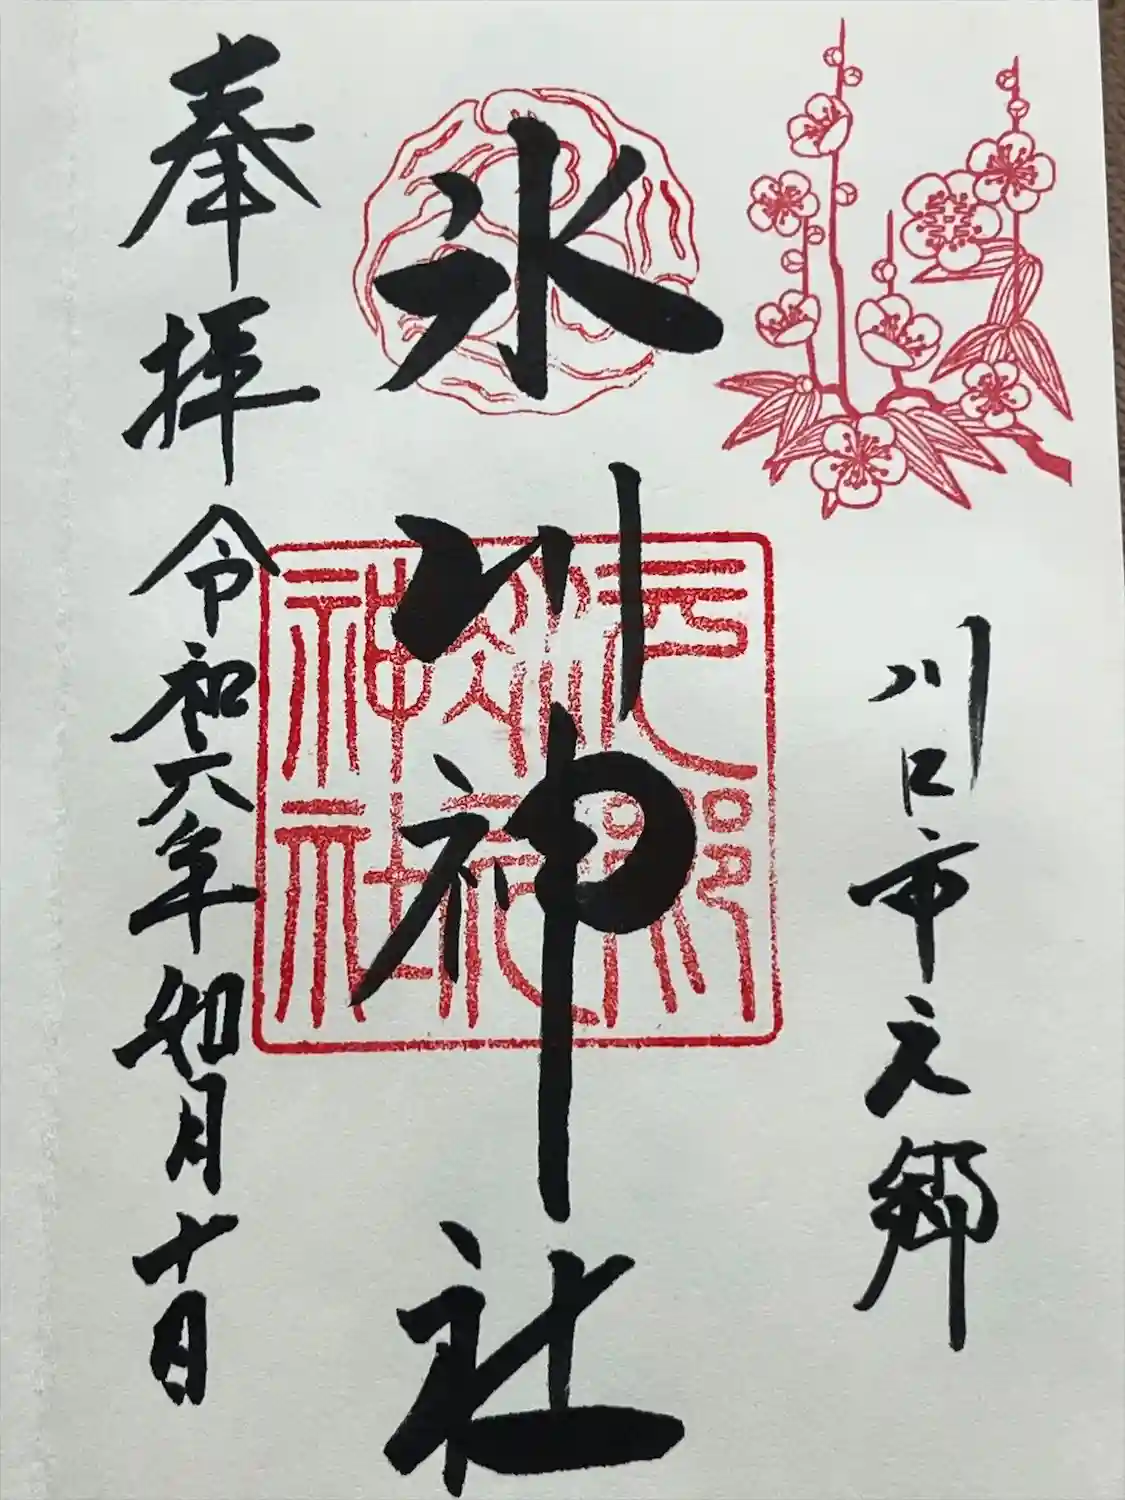 川口市元郷
氷川神社
奉拝 令和六年如月十日
元郷
神社